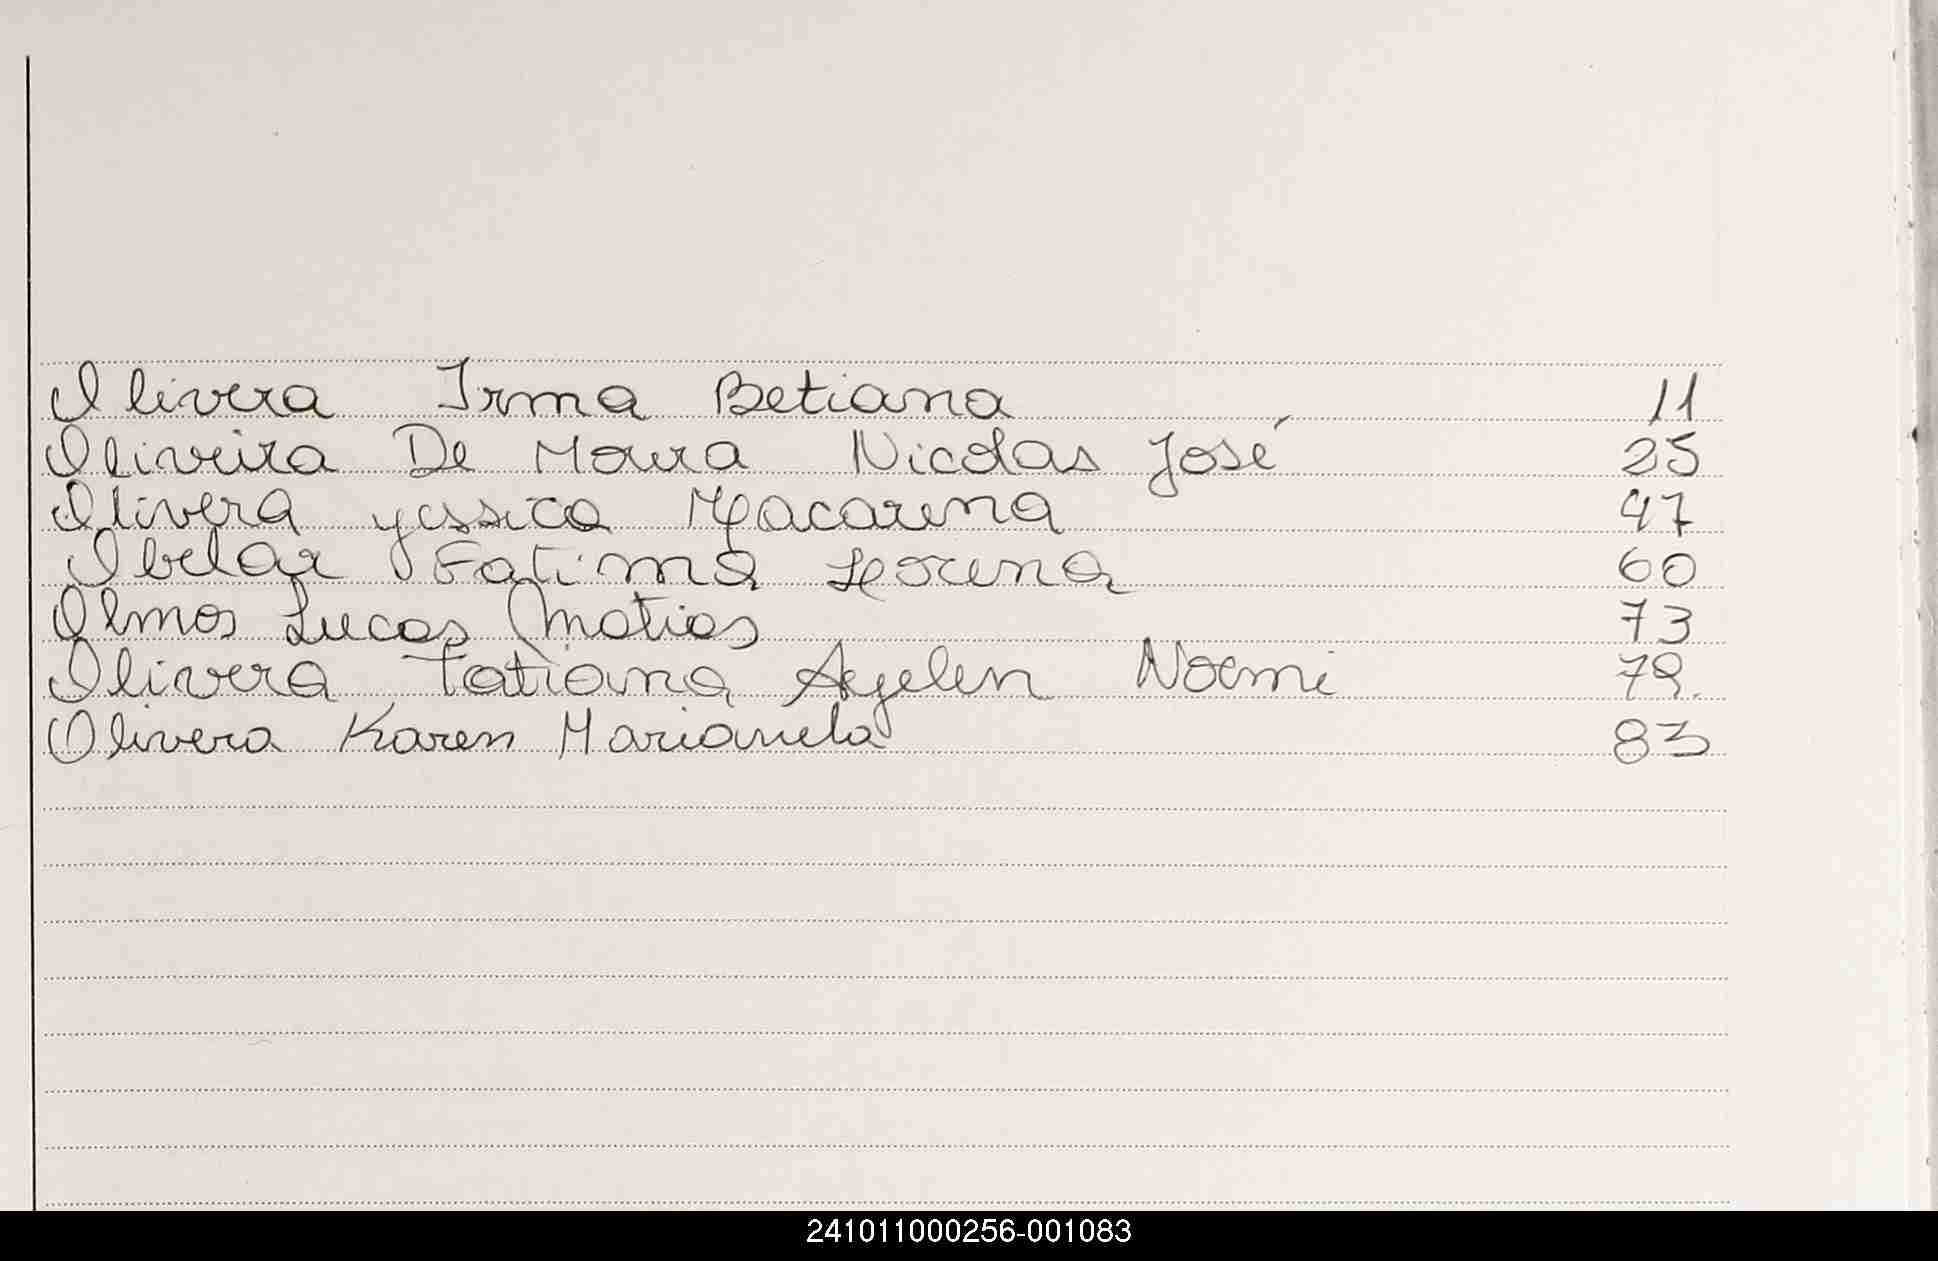 Olivera Irma Betiana 11
Oliveira De Moura Nicolas José 25
Olivera Yessica Macarena 47
Obelar Fatima Lorena 60
Olmos Lucas Matias 73
Olivera Tatiana Ayelen Noemi 79.
Olivera Karen Marianela 83
241011000256-001083